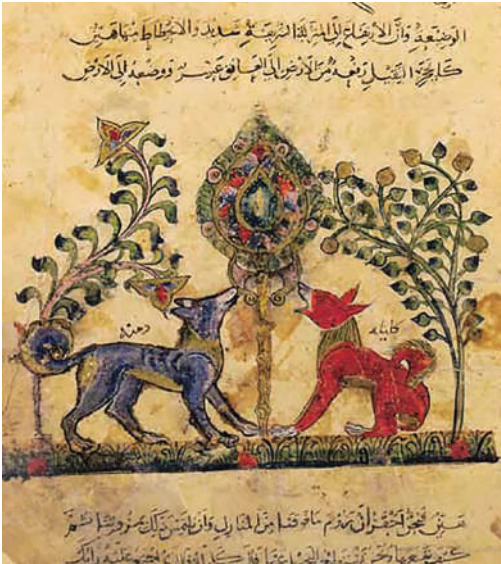 الوضيعة وان الارتفاع الى المنزلة الشريفة شديد والانحطاط منها هين
كالحجر الثقيل رفعه من الارض الى العاتق عسير ووضعه الى الارض
دمنه
كليله
هين فنحن احق ان نروم ما فوقنا من المنازل وان نلتمس ذلك